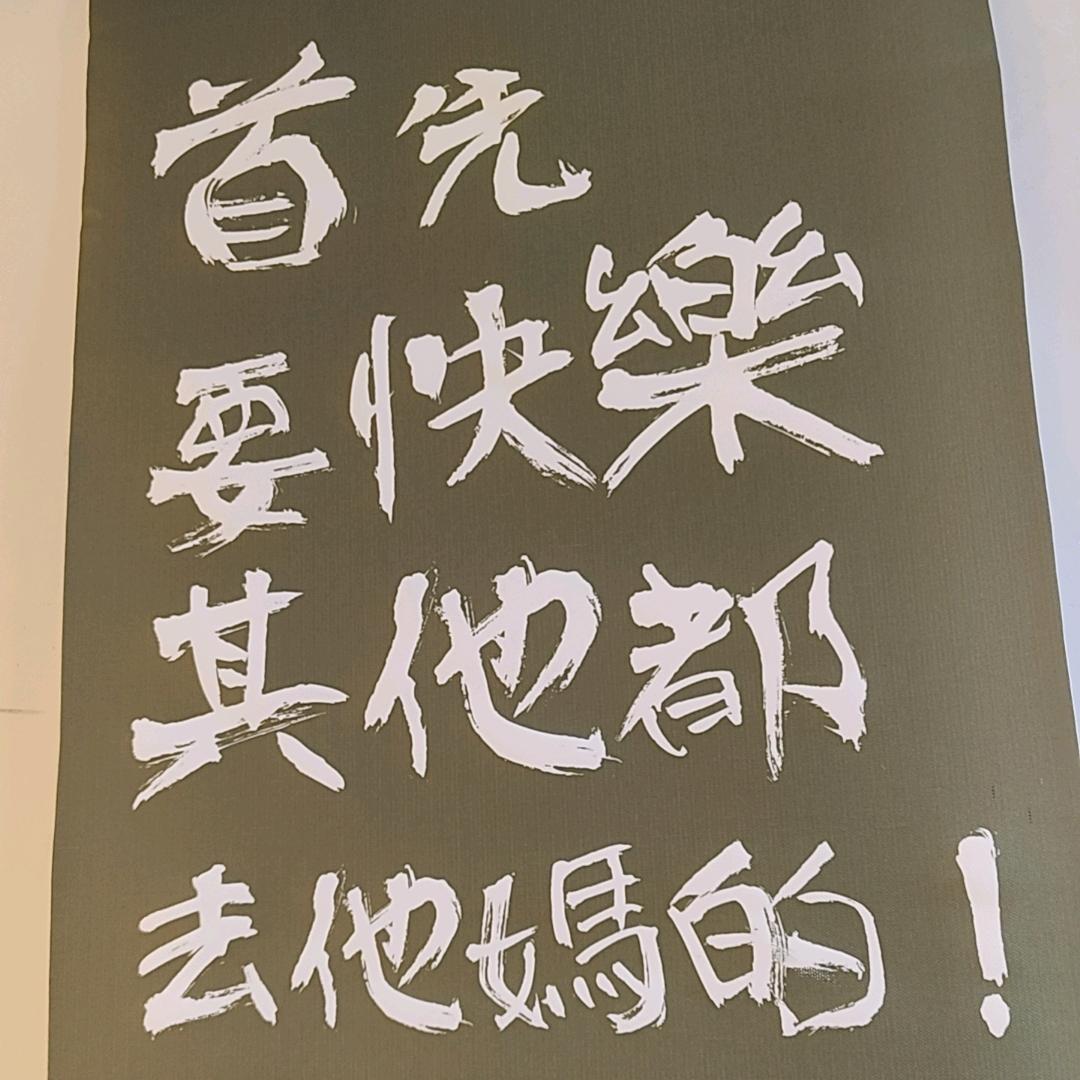 首先
要快樂
其他都
去他媽的!